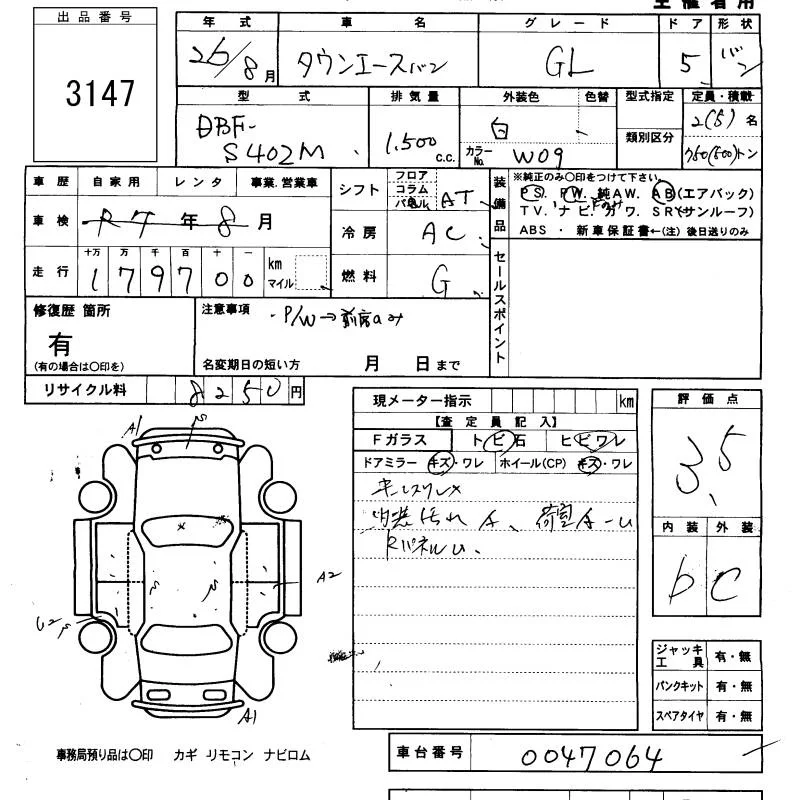 主催者用
出品番号
3147
年式 車名 グレード ドア 形状
26/8月 タウンエースバン GL 5 バン
型式 排気量 外装色 色替 型式指定 定員・積載
DBF-
S402M 1.500 c.c. 白 カラーNo. W09 類別区分 2(5)名
750(500)トン
車歴 自家用 レンタ 事業.営業車
車検 R7年8月
走行 十万 万 千 百 十 一
179700 km マイル
シフト フロア コラム パネル AT
冷房 AC
燃料 G
装備品 ※純正のみ〇印をつけて下さい。
PS. PW. 純AW. AB(エアバック)
TV. ナビ. カワ. SR(サンルーフ)
ABS ・ 新車保証書←(注) 後日送りのみ
セールスポイント
修復歴 箇所
有
(有の場合は〇印を)
注意事項
・P/W→前席のみ
名変期日の短い方 月 日まで
リサイクル料 8250円
現メーター指示 km
【査定員記入】
Fガラス トビ石 ヒビワレ
ドアミラー キズ・ワレ ホイール(CP) キズ・ワレ
キーレスリレメ
内装汚れA、荷室A-U
RパネルU、
評価点
3.5
内装 外装
b C
A1
A2
U2
A1
ジャッキ工具 有・無
パンクキット 有・無
スペアタイヤ 有・無
事務局預り品は〇印 カギ リモコン ナビロム
車台番号 0047064